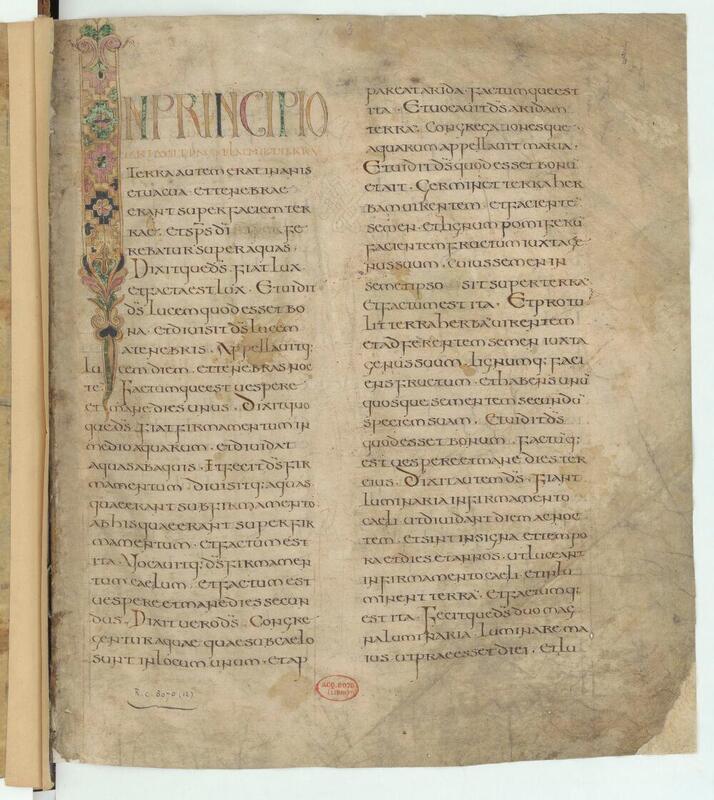 IN PRINCIPIO
TERRA AUTEM ERAT INANIS
ET UACUA · ET TENEBRAE
ERANT SUPER FACIEM TER
RAE · ET SPS DI FE
REBATUR SUPER AQUAS ·
DIXITQUE DS FIAT LUX ·
ET FACTA EST LUX · ET UIDIT
DS LUCEM QUOD ESSET BO
NA · ET DIUISIT DS LUCEM
A TENEBRIS · APPELLAUITQ:
LUCEM DIEM · ET TENEBRAS NOC
TE · FACTUMQUE EST UESPERE
ET MANE DIES UNUS · DIXIT QUO
QUE DS · FIAT FIRMAMENTUM IN
MEDIO AQUARUM · ET DIUIDAT
AQUAS AB AQUIS · ET FECIT DS FIR
MAMENTUM · DIUISITQ: AQUAS
QUAE ERANT SUB FIRMAMENTO
AB HIS QUAE ERANT SUPER FIR
MAMENTUM · ET FACTUM EST
ITA · UOCAUITQ: DS FIRMAMEN
TUM CAELUM · ET FACTUM EST
UESPERE ET MANE DIES SECUN
DUS · DIXIT UERO DS · CONGRE
GENTUR AQUAE QUAE SUB CAELO
SUNT IN LOCUM UNUM · ET AP
PAREAT ARIDA · FACTUMQUE EST
ITA · ET UOCAUIT DS ARIDAM
TERRĀ · CONGREGATIONESQUE
AQUARUM APPELLAUIT MARIA ·
ET UIDIT DS QUOD ESSET BONŪ
ET AIT · GERMINET TERRA HER
BAM UIRENTEM · ET FACIENTĒ
SEMEN · ET LIGNUM POMIFERŪ
FACIENTEM FRUCTUM IUXTA GE
NUS SUUM · CUIUS SEMEN IN
SEMETIPSO SIT SUPER TERRĀ ·
ET FACTUM EST ITA · ET PROTU
LIT TERRA HERBĀ UIRENTEM
ET ADFERENTEM SEMEN IUXTA
GENUS SUUM · LIGNUMQ: FACI
ENS FRUCTUM · ET HABENS UNŪ
QUODQUE SEMENTEM SECUNDŪ
SPECIEM SUAM · ET UIDIT DS
QUOD ESSET BONUM · FACTŪQ:
EST UESPERE ET MANE DIES TER
CIUS · DIXIT AUTEM DS · FIANT
LUMINARIA IN FIRMAMENTO
CAELI UT DIUIDANT DIEM AC NOC
TEM · ET SINT IN SIGNA ET TEMPO
RA ET DIES ET ANNOS · UT LUCEANT
IN FIRMAMENTO CAELI · ET INLU
MINENT TERRĀ · ET FACTUMQ:
EST ITA · FECITQUE DS DUO MAG
NA LUMINARIA · LUMINARE MA
IUS UT PRAEESSET DIEI · ET LU
R. c. 8070 (12)
ACQ. 8070
(LIBRI)